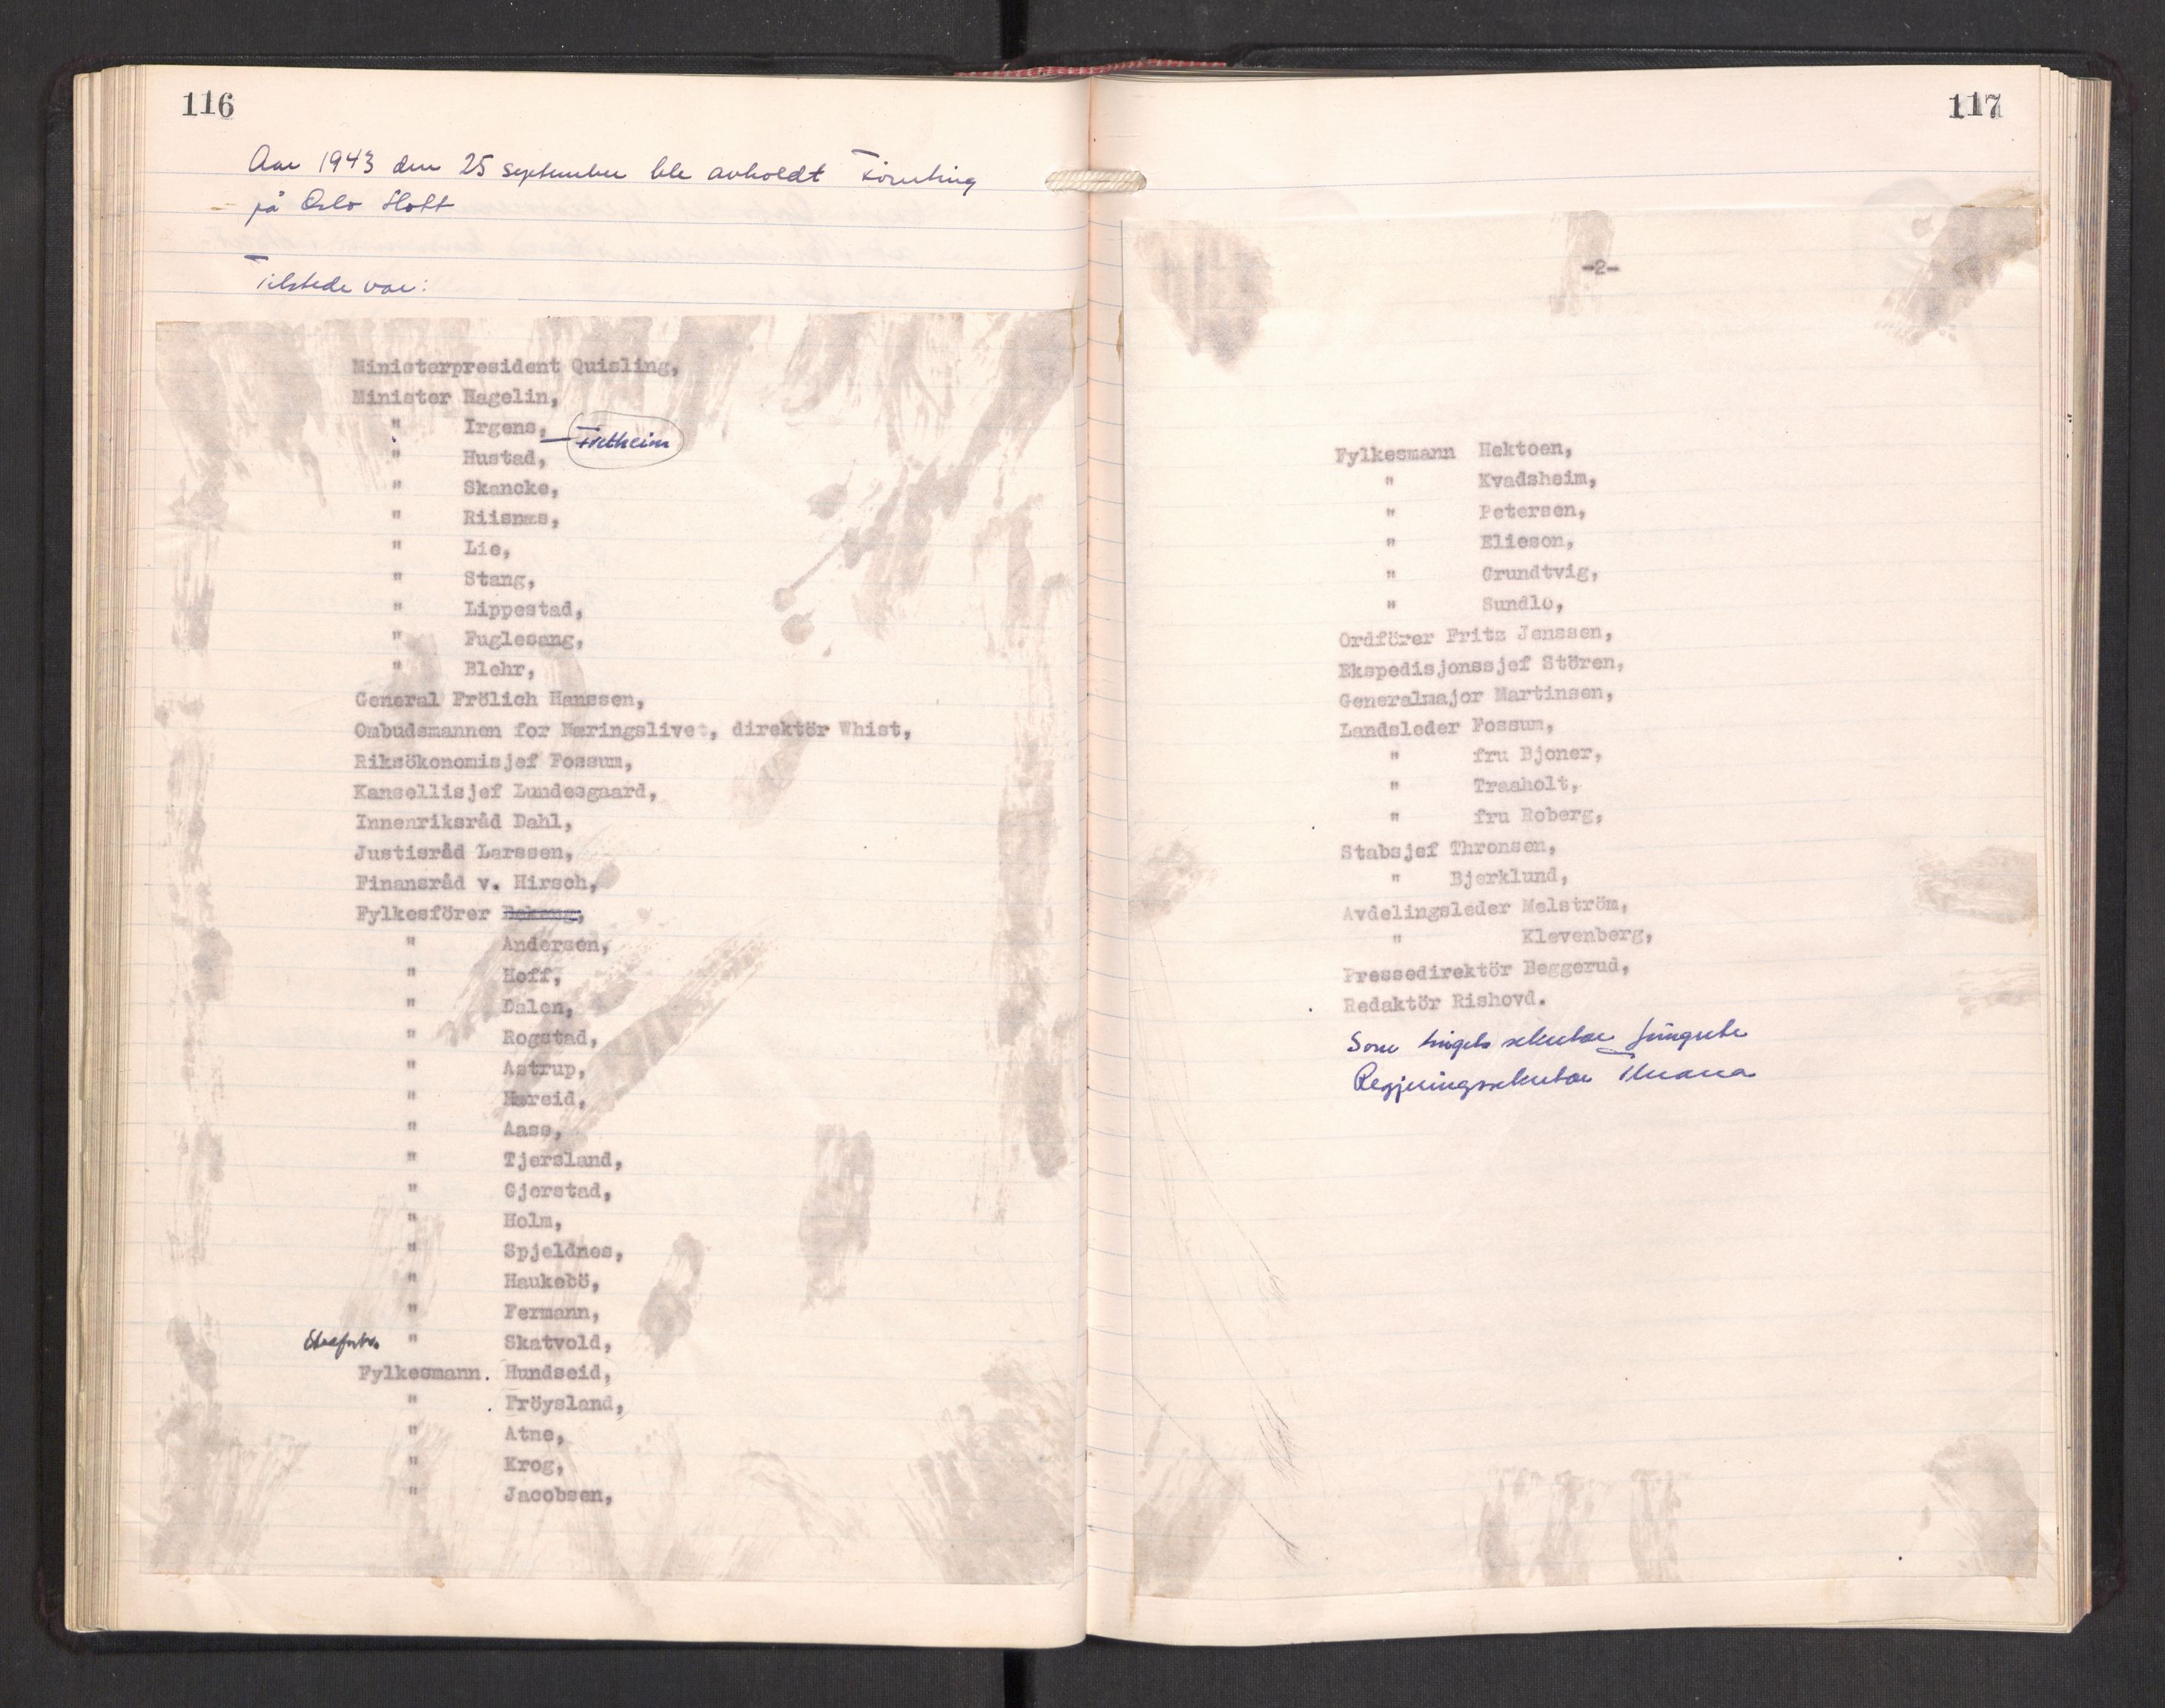 116
Aar 1943 den 25 september ble avholdt Förerting
på Oslo Slott
Tilstede var:
Ministerpresident Quisling,
Minister Hagelin,
" Irgens, — Fretheim
" Hustad,
" Skancke,
" Riisnæs,
" Lie,
" Stang,
" Lippestad,
" Fuglesang,
" Blehr,
General Frölich Hanssen,
Ombudsmannen for Næringslivet, direktör Whist,
Riksökonomisjef Fossum,
Kansellisjef Lundesgaard,
Innenriksråd Dahl,
Justisråd Larssen,
Finansråd v. Hirsch,
Fylkesförer
" Andersen,
" Hoff,
" Dalen,
" Rogstad,
" Astrup,
" Næreid,
" Aass,
" Tjersland,
" Gjerstad,
" Holm,
" Spjeldnes,
" Haukebö,
" Fermann,
" Skatvold,
Fylkesmann. Hundseid,
" Fröysland,
" Atne,
" Krog,
" Jacobsen,
117
-2-
Fylkesmann Hektoen,
" Kvadsheim,
" Petersen,
" Elieson,
" Grundtvig,
" Sundlo,
Ordförer Fritz Jenssen,
Ekspedisjonssjef Stören,
Generalmajor Martinsen,
Landsleder Fossum,
" fru Bjoner,
" Traaholt,
" fru Roberg,
Stabsjef Thronsen,
" Bjerklund,
Avdelingsleder Melström,
" Klevenberg,
Pressedirektör Beggerud,
Redaktör Rishovd.
Som tingets sekretær fungerte
Regjeringssekretær